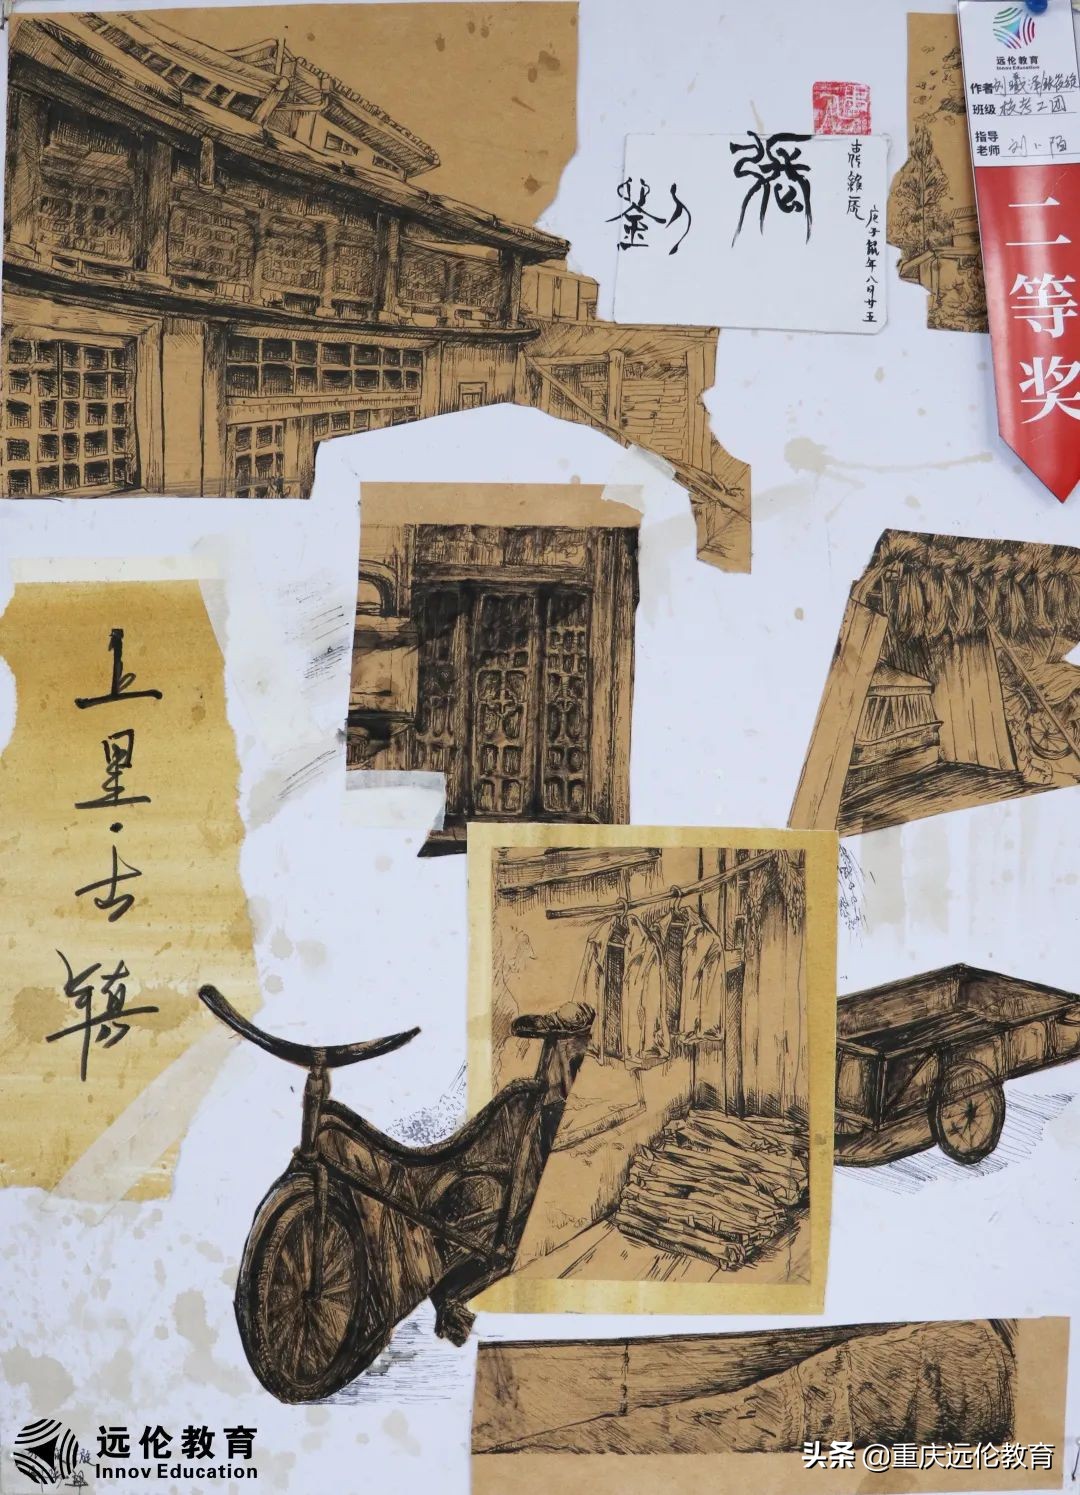 远伦教育
Innov Education
作者
班级 校考二团
指导
老师 刘小陌
二等奖
張
劉
庚子鼠年八月廿五
上里·古镇
远伦教育
Innov Education
头条 @重庆远伦教育